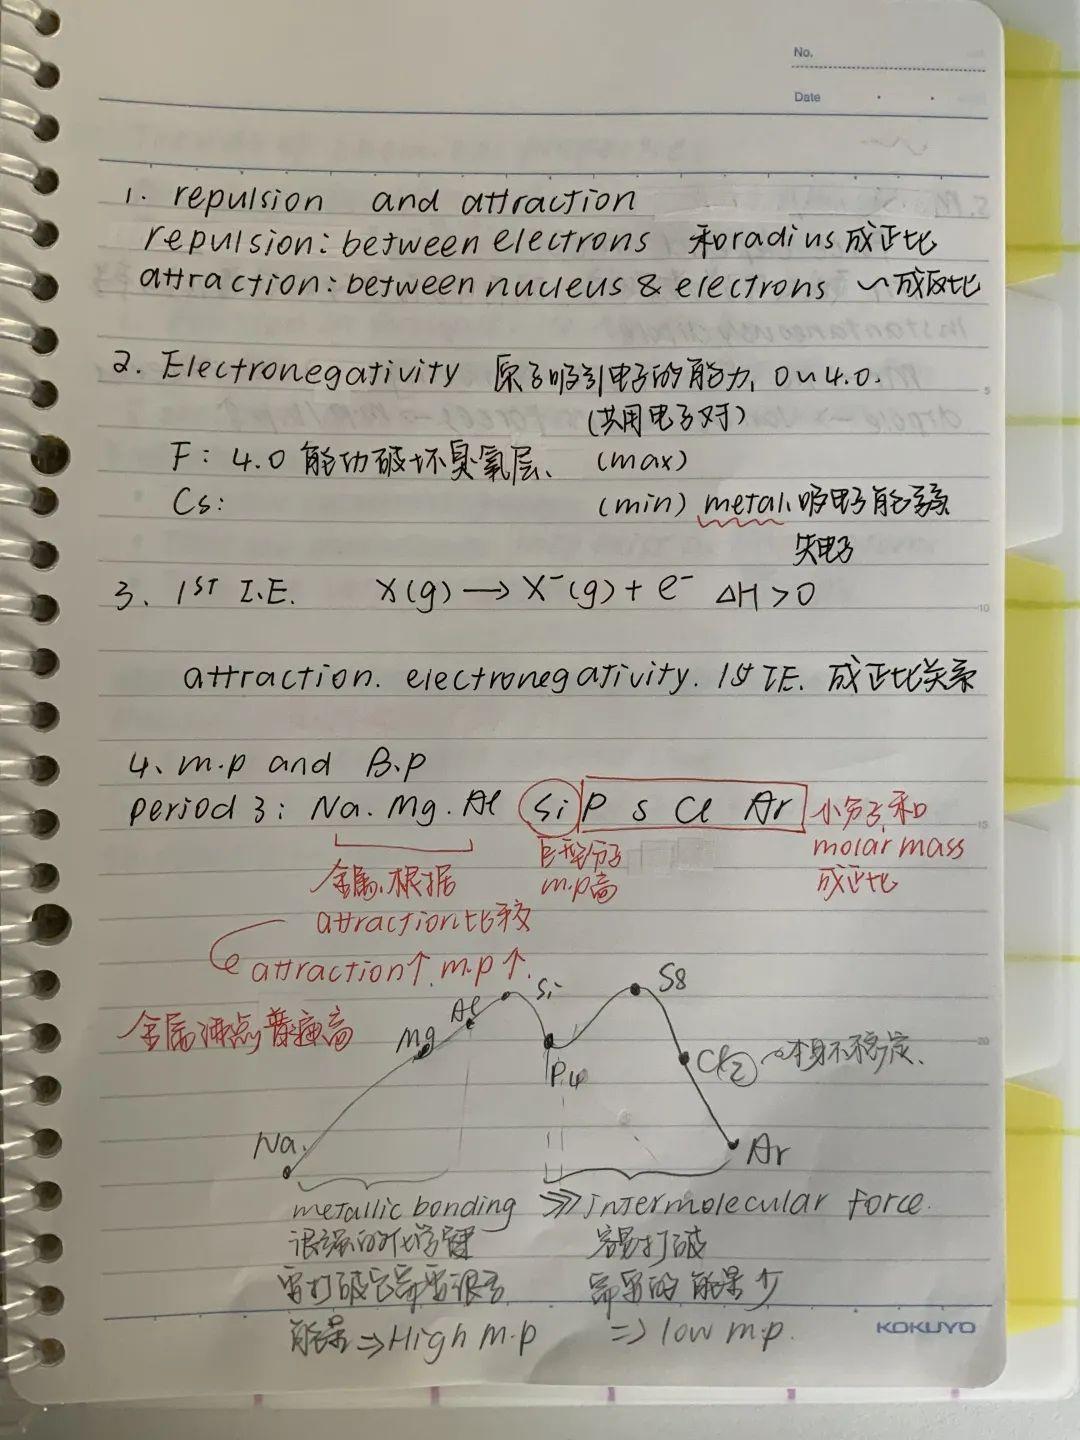 No.
Date
1. repulsion and attraction
repulsion: between electrons 和radius成正比
attraction: between nucleus & electrons ~成反比
2. Electronegativity 原子吸引电子的能力, 0~4.0.
(共用电子对)
F: 4.0 能功破坏臭氧层、 (max)
Cs: (min) metal、吸电子能
失电子
3. 1ST I.E. X(g) → X⁻(g) + e⁻ ΔH > 0
attraction. electronegativity. 1st I.E. 成正比关系
4、m.p and B.p
period 3: Na. Mg. Al Si P S Cl Ar 小分子、和
molar mass
成正比
巨型分子
m.p高
金属、根据
attraction比较
attraction↑ m.p↑.
金属沸点普遍高
Na. Mg Al Si P4 S8 Cl2 ~本身不稳定、
Ar
metallic bonding >>> Intermolecular force.
很强的化学键 容易打破
需打破它需要很多 需要的能量少
能量 ⇒ High m.p ⇒ low m.p.
KOKUYO